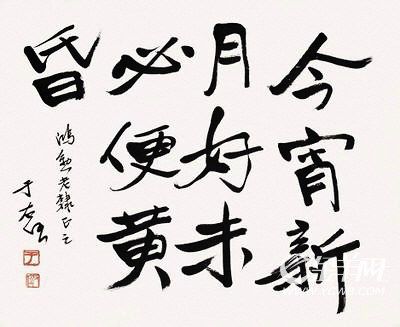 今宵新
月好未
必便黄
昏
老棣正之
于右任
金羊网